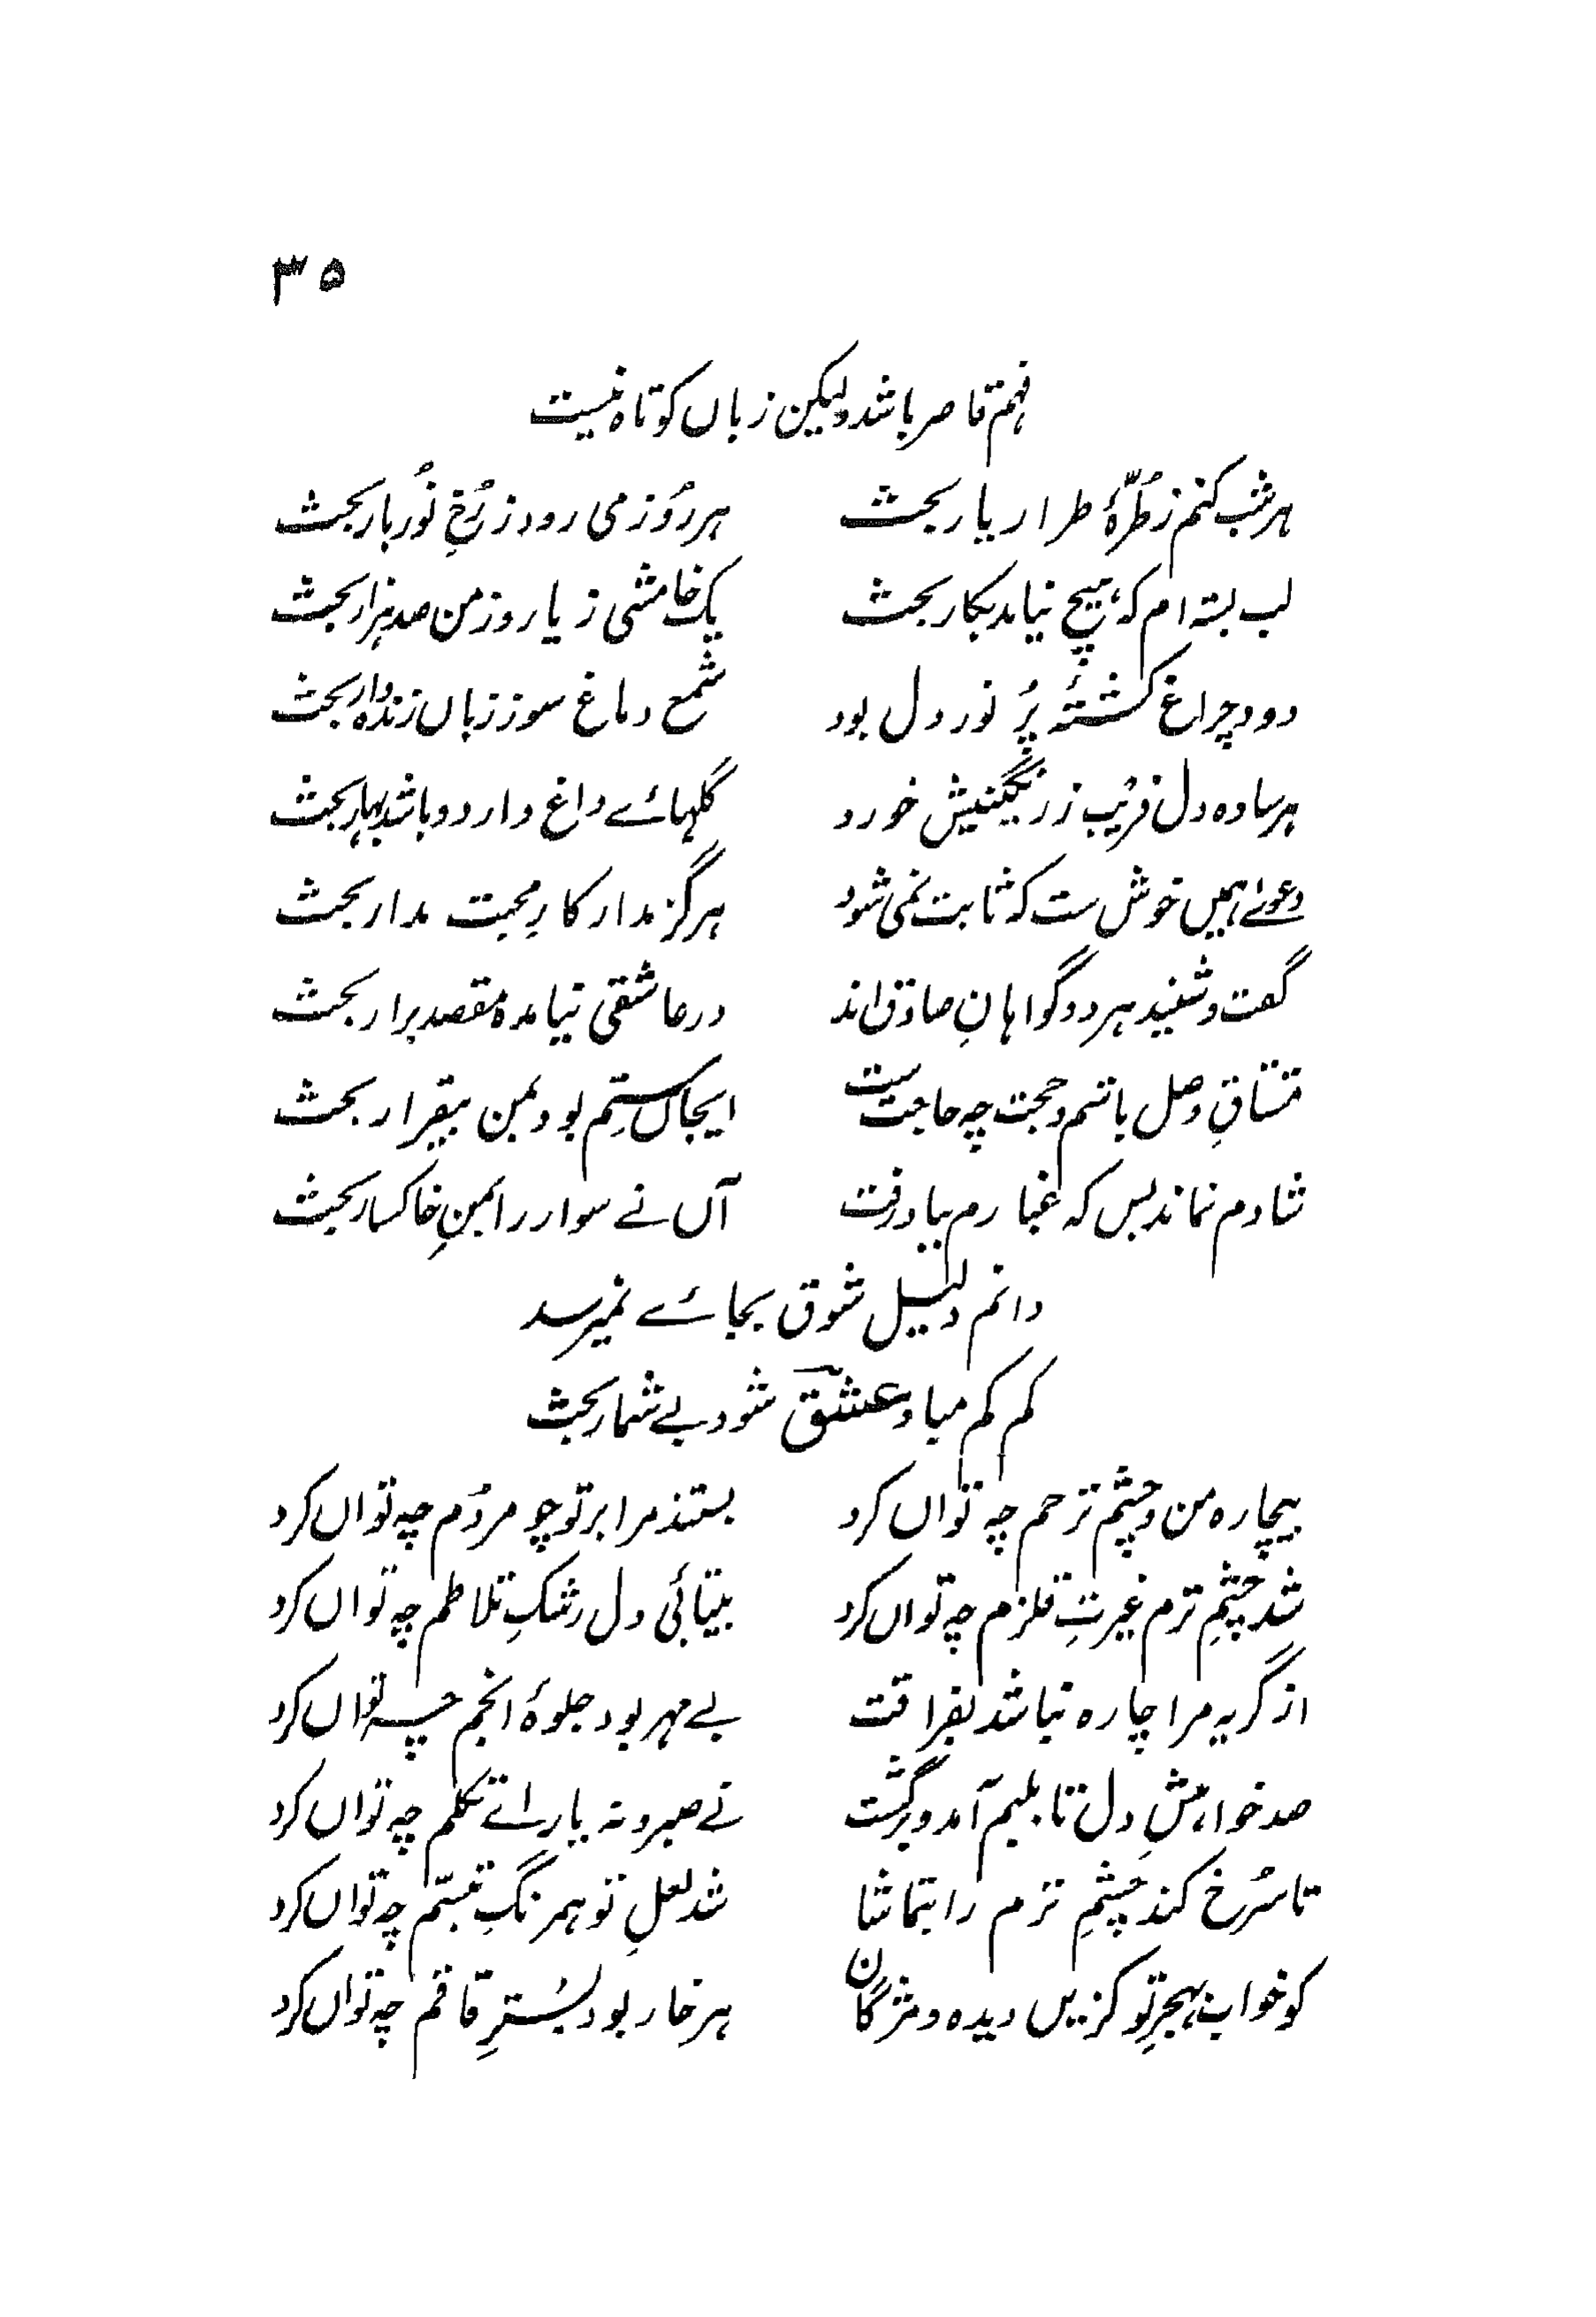 ۳۵
فہم قاصر باشد ولیکن زباں کوتاہ نیست
ہر شب کنم ز طُرّۂ طرار یار بحث ہر رُوز می رود ز رُخِ نُور بار بحث
لب بستہ ام کہ ہیچ نیاید بکار بحث یک خامشی ز یار وز من صد ہزار بحث
دود چراغ کشتۂ پُر نور دل بود شمع دماغ سوز زباں زندہ دار بحث
ہر سادہ دل فریب ز رنگینیش خورد گلہائے داغ دارد و باشد بہار بحث
دعوئے ہمیں خوش ست کہ ثابت نمی شود ہر گز مدار کارِ محبت مدار بحث
گفت و شنید ہر دو گواہانِ صادق اند در عاشقی نیامدہ مقصد برار بحث
مشتاقِ وصل باشم و حجت چہ حاجت ست ایجاں ستم بود بمن بیقرار بحث
شادم نماند بس کہ غبارم بباد رفت آں نے سوار را بمنِ خاکسار بحث
دانم دلیل شوق بجائے نمیرسد
کم کم مباد عشق شود بے شمار بحث
بیچارہ من و چشم ترحم چہ تواں کرد بستند مرا بر تو چو مردُم چہ تواں کرد
شد چشمِ ترم غیرتِ قلزم چہ تواں کرد بیتابئی دل رشکِ تلاطم چہ تواں کرد
از گریہ مرا چارہ نباشد بفراقت بے مہر بود جلوۂ انجم چہ تواں کرد
صد خواہشِ دل تا بلبم آمد و برگشت نے صبر و نہ یارائے تکلم چہ تواں کرد
تا سُرخ کند چشمِ ترم را بتماشا شد لعلِ تو ہمرنگِ تبسّم چہ تواں کرد
کو خواب بہجرِ تو کزیں دیدہ و مژگان ہر خار بود بسترِ قاقم چہ تواں کرد